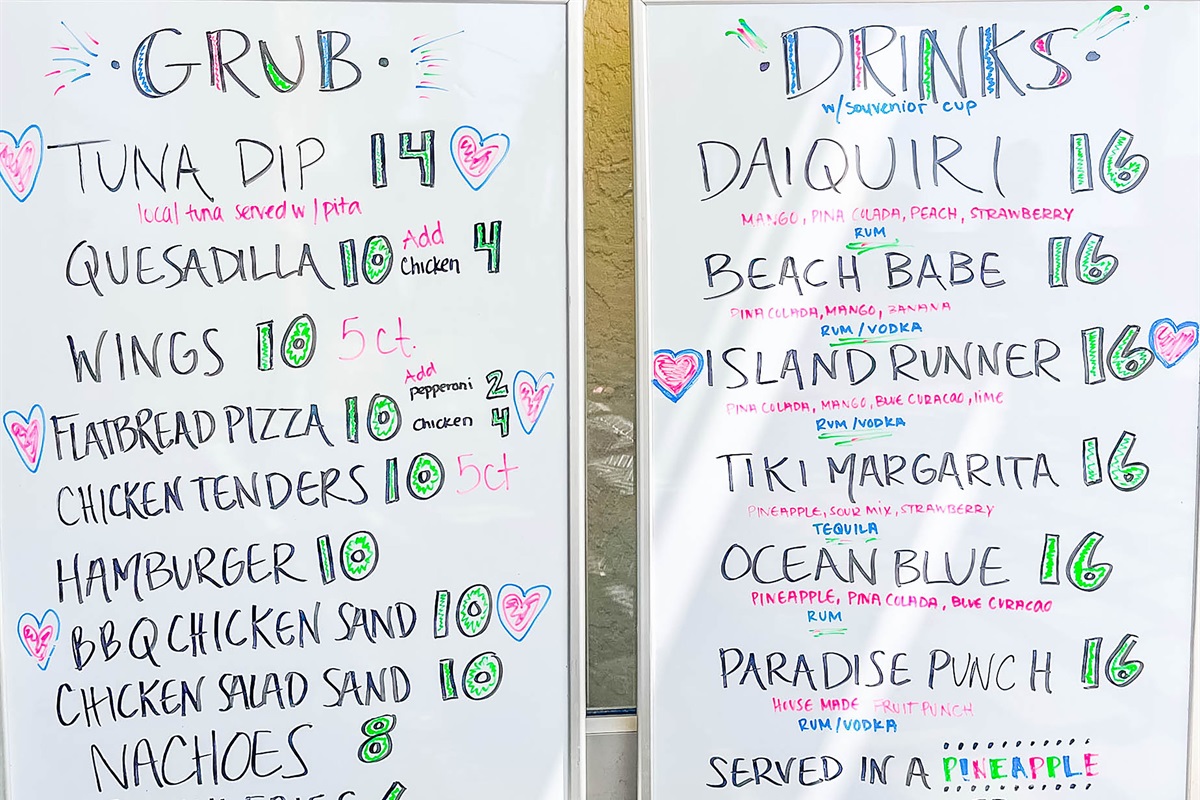 GRUB
TUNA DIP 14
local tuna served w/pita
QUESADILLA 10 Add Chicken 4
WINGS 10 5ct.
FLATBREAD PIZZA 10 Add pepperoni 2
Chicken 4
CHICKEN TENDERS 10 5ct
HAMBURGER 10
BBQ CHICKEN SAND 10
CHICKEN SALAD SAND 10
NACHOES 8
DRINKS
w/souvenior cup
DAIQUIRI 16
MANGO, PINA COLADA, PEACH, STRAWBERRY
RUM
BEACH BABE 16
PINA COLADA, MANGO, BANANA
RUM/VODKA
ISLAND RUNNER 16
PINA COLADA, MANGO, BLUE CURACAO, lime
RUM/VODKA
TIKI MARGARITA 16
PINEAPPLE, SOUR MIX, STRAWBERRY
TEQUILA
OCEAN BLUE 16
PINEAPPLE, PINA COLADA, BLUE CURACAO
RUM
PARADISE PUNCH 16
HOUSE MADE FRUIT PUNCH
RUM/VODKA
SERVED IN A PINEAPPLE